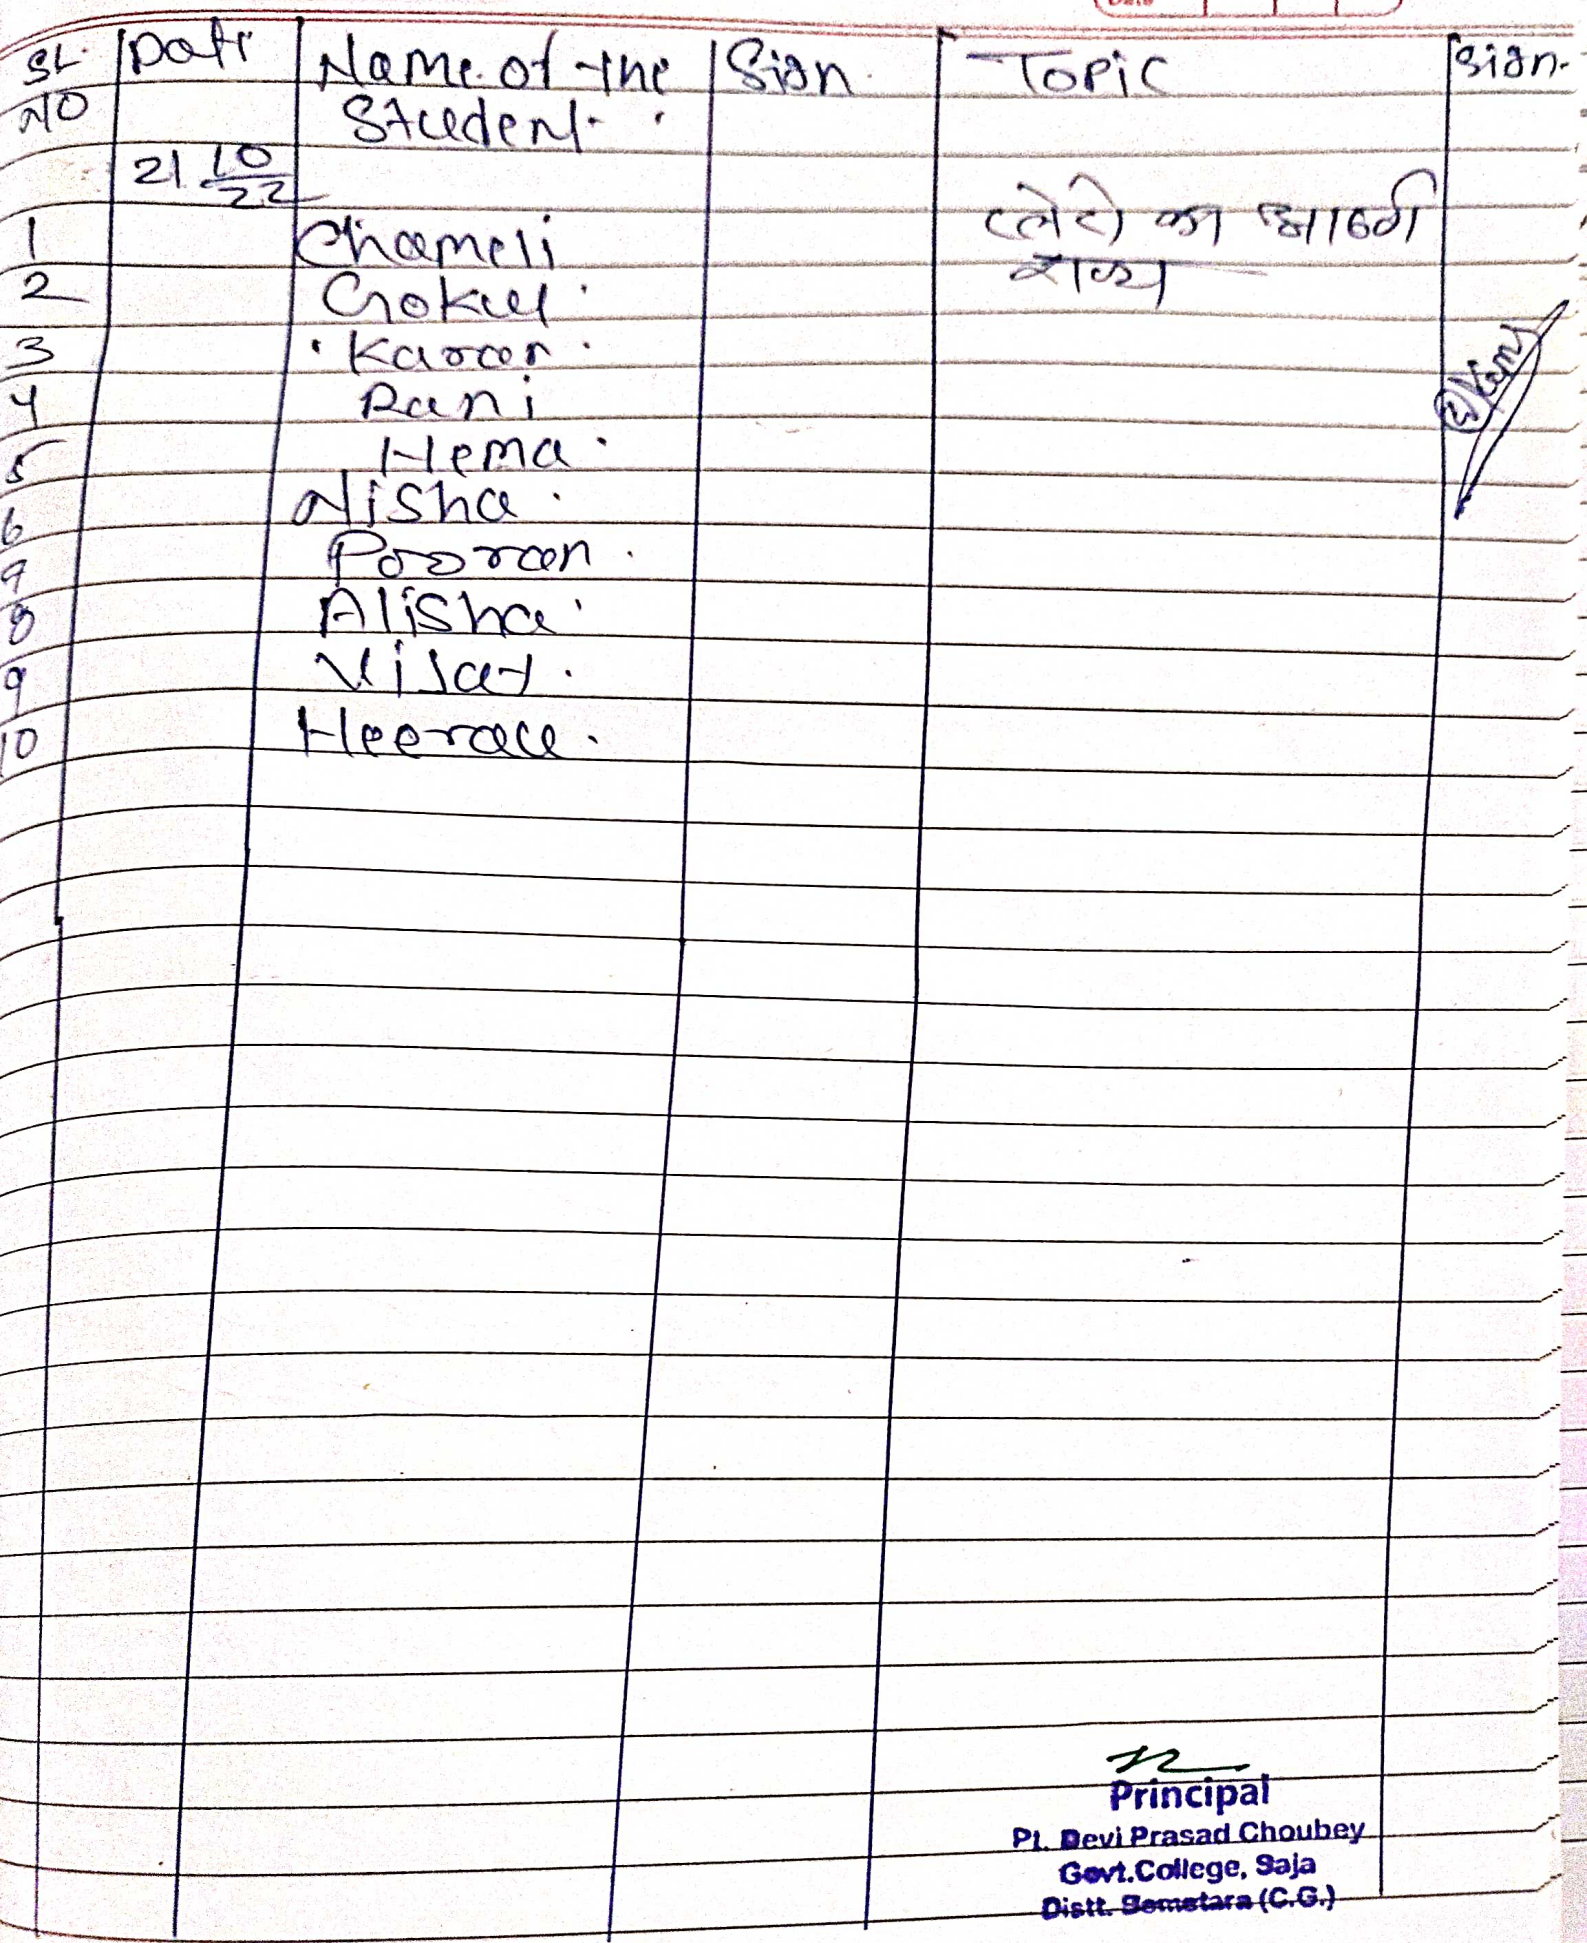 SL. NO | Date | Name of the Student | Sign. | Topic | Sign.
21 10/22
1 Chameli प्लेटो का आदर्श
2 Gokul राज्य
3 Karan
4 Rani
5 Hema
6 Nisha
7 Pooran
8 Alisha
9 Vijay
10
Principal
Pt. Devi Prasad Choubey
Govt.College, Saja
Distt. Bemetara (C.G.)